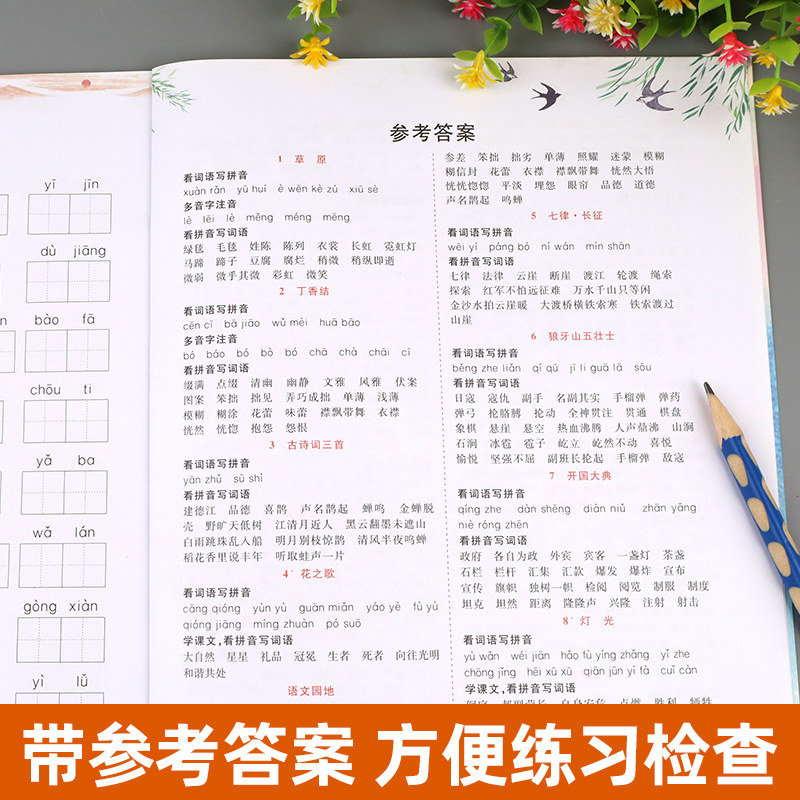 yī jīn
dù jiāng
bào fā
chōu ti
yǎ ba
wǎ lán
gòng xiàn
yì lǚ
参考答案
1 草 原
看词语写拼音
xuàn rǎn yū huí è wēn kè zú xiū sè
多音字注音
lè lēi lè měng méng mēng
看拼音写词语
绿毯 毛毯 姓陈 陈列 衣裳 长虹 霓虹灯
马蹄 蹄子 豆腐 腐烂 稍微 稍纵即逝
微弱 微乎其微 彩虹 微笑
2 丁香结
看词语写拼音
cēn cī bā jiāo wǔ mèi huā bāo
多音字注音
bó báo bó bò bó chā chà chāi cī
看拼音写词语
缀满 点缀 清幽 幽静 文雅 风雅 伏案
图案 笨拙 拙见 弄巧成拙 单薄 浅薄
模糊 糊涂 花蕾 味蕾 襟飘带舞 衣襟
恍然 恍惚 抱怨 怨恨
3 古诗词三首
看词语写拼音
yān zhǔ sù shì
看拼音写词语
建德江 品德 喜鹊 声名鹊起 蝉鸣 金蝉脱
壳 野旷天低树 江清月近人 黑云翻墨未遮山
白雨跳珠乱入船 明月别枝惊鹊 清风半夜鸣蝉
稻花香里说丰年 听取蛙声一片
4* 花之歌
看词语写拼音
cāng qióng yùn yù guān miǎn yáo yè fù yù
qióng jiāng míng zhuàn pó suō
学课文，看拼音写词语
大自然 星星 礼品 冠冕 生者 死者 向往光明
和谐共处
语文园地
参差 笨拙 拙劣 单薄 照耀 迷蒙 模糊
糊信封 花蕾 衣襟 襟飘带舞 恍然大悟
恍恍惚惚 平淡 埋怨 眼帘 品德 道德
声名鹊起 鸣蝉
5 七律·长征
看词语写拼音
wēi yí páng bó ní wán mín shān
看拼音写词语
七律 法律 云崖 断崖 渡江 轮渡 绳索
探索 红军不怕远征难 万水千山只等闲
金沙水拍云崖暖 大渡桥横铁索寒 铁索渡过
山崖
6 狼牙山五壮士
看词语写拼音
bēng zhe liǎn qí qū jī lí guā lā sōu
看拼音写词语
日寇 寇仇 副手 名副其实 手榴弹 弹药
弹弓 抡胳膊 抡动 全神贯注 贯通 棋盘
象棋 悬崖 悬空 热血沸腾 人声鼎沸 山涧
石涧 冰雹 雹子 屹立 屹然不动 喜悦
愉悦 坚强不屈 副班长抡起 手榴弹 敌寇
7 开国大典
看词语写拼音
qíng zhe dàn shēng diàn niǔ zhān yǎng
niè róng zhēn
看拼音写词语
政府 各自为政 外宾 宾客 一盏灯 茶盏
石栏 栏杆 汇集 汇款 爆发 爆炸 宣布
宣传 旗帜 独树一帜 检阅 阅览 制服 制度
坦克 坦然 距离 隆隆声 兴隆 注射 射击
8* 灯 光
看词语写拼音
yù wǎn wéi jiān hǎo fù yíng zhǎng yǐ zhe
chōng jǐng hēi xū xū qiān jūn yí fà cuī càn
学课文，看拼音写词语
带参考答案 方便练习检查